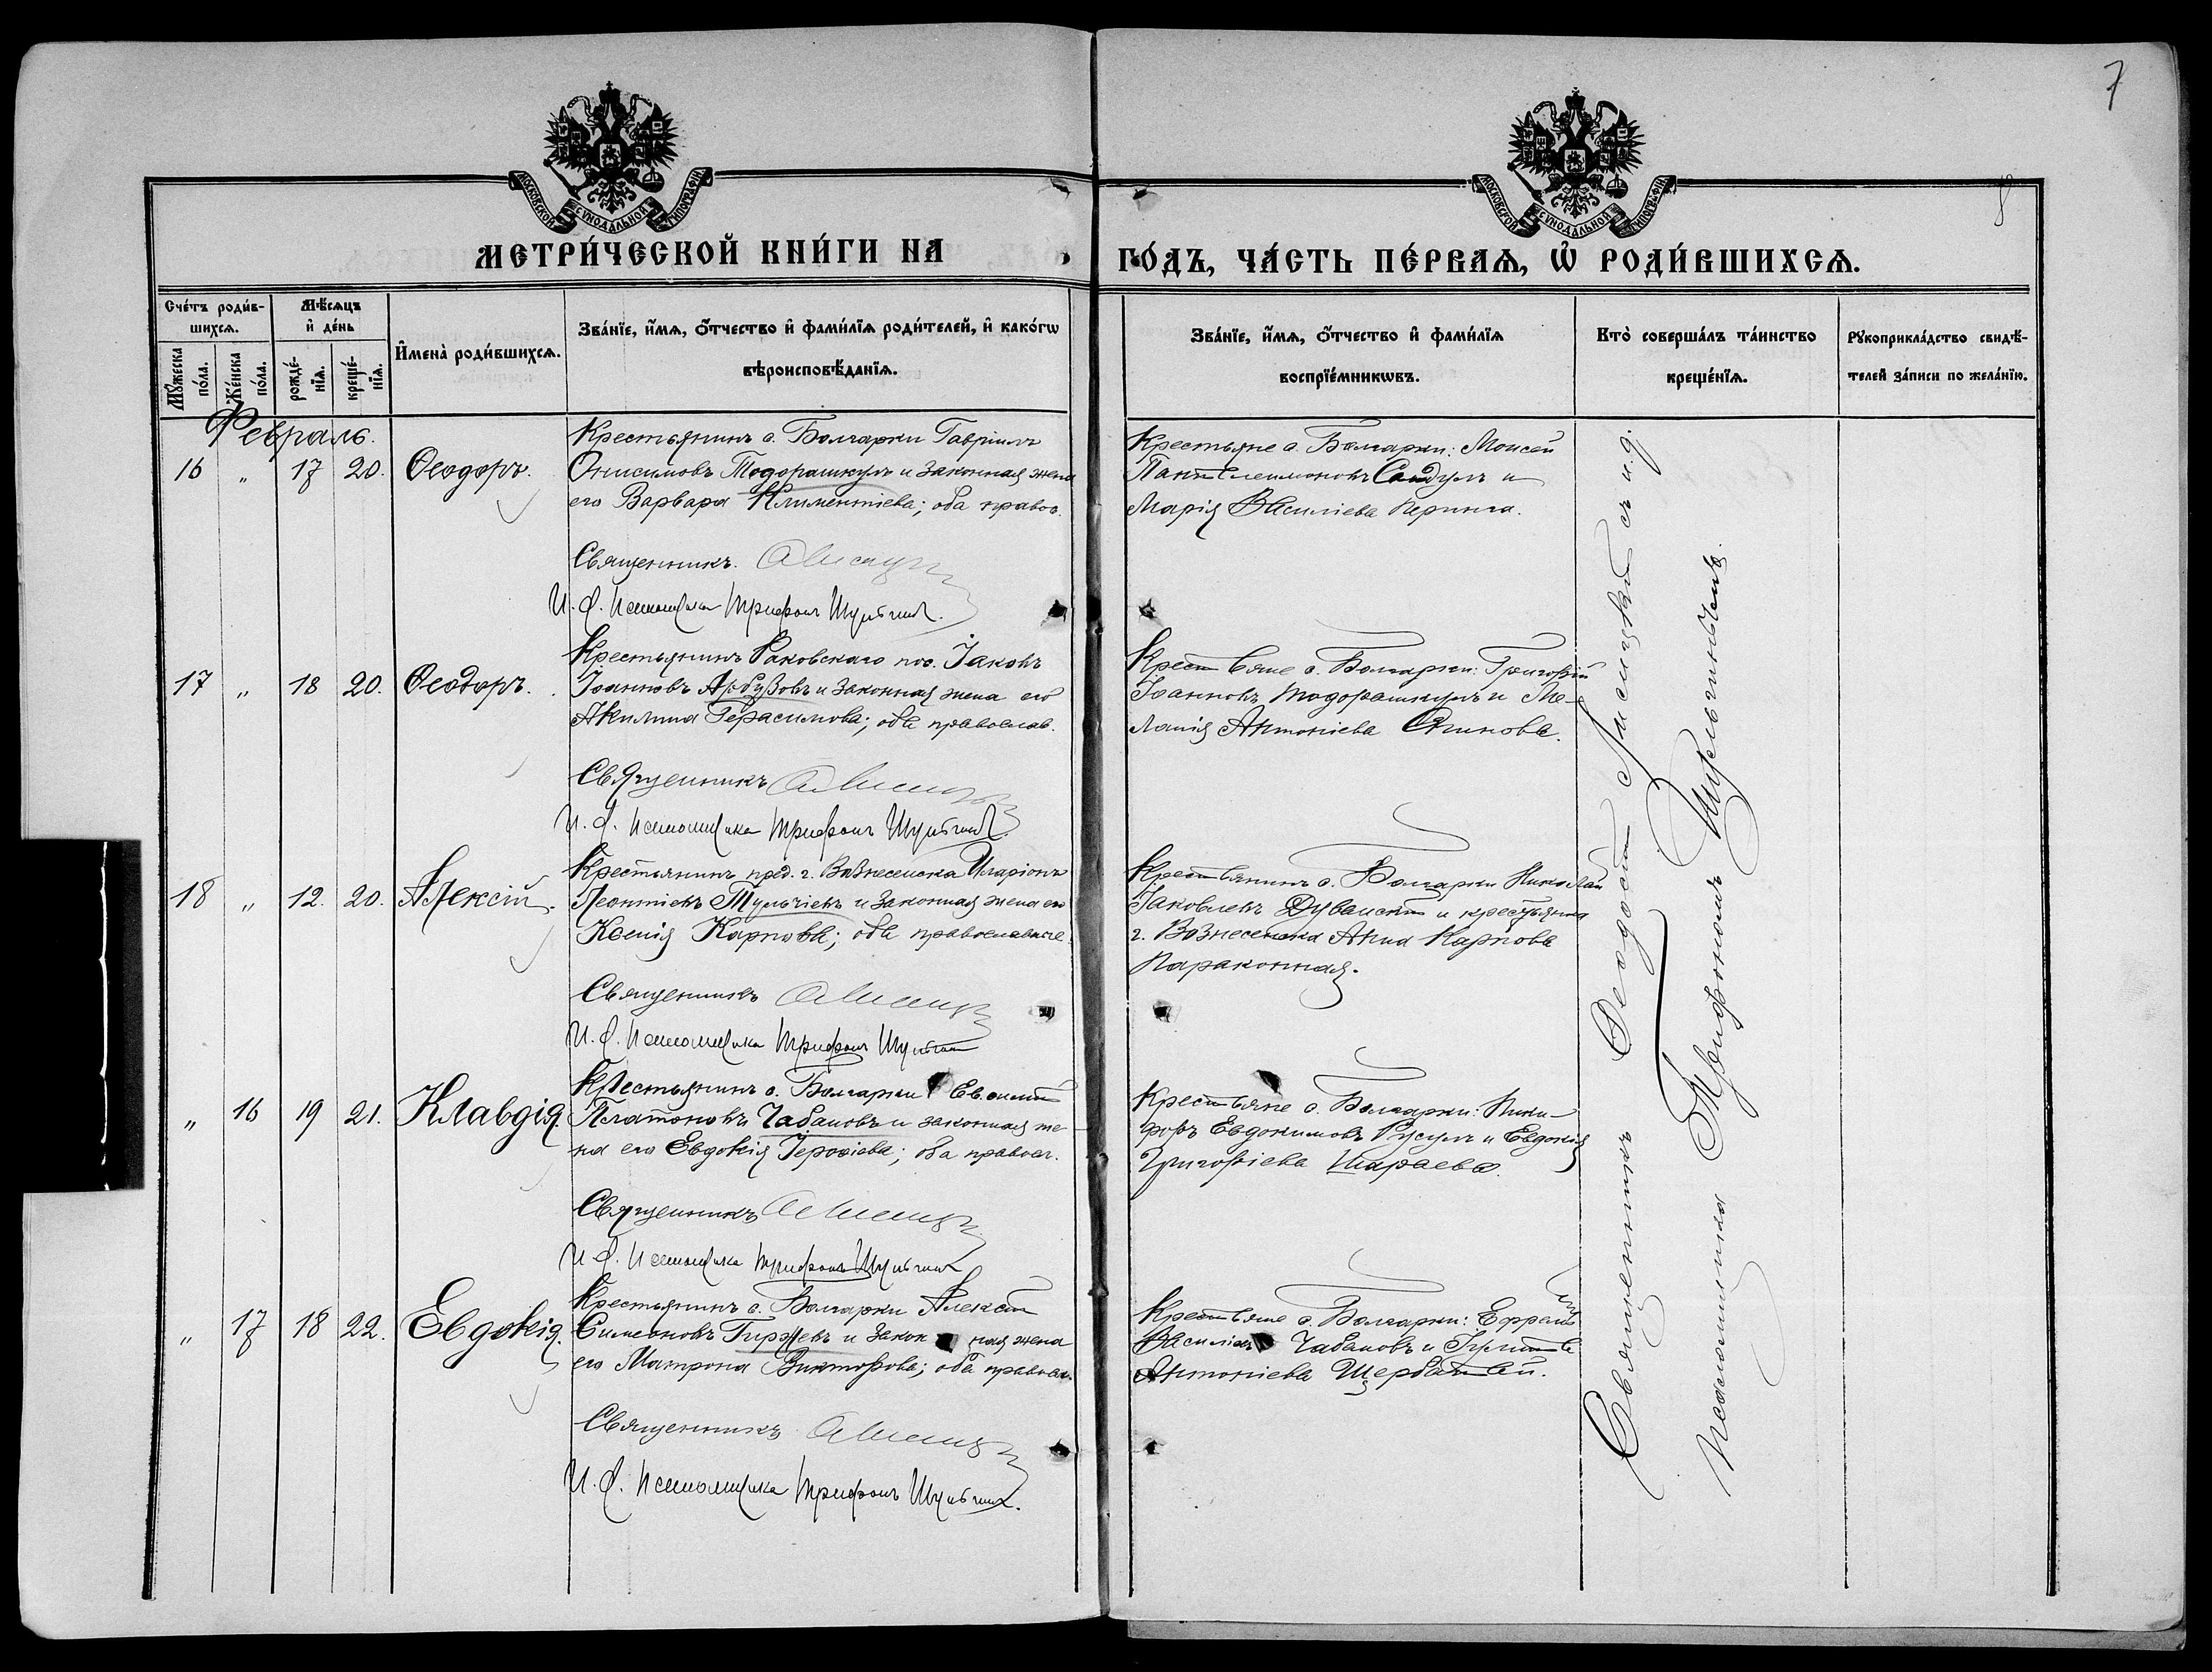 7
8
МОСКОВСКОЙ СѴНОДАЛЬНОЙ ТИПОГРАФІИ
МОСКОВСКОЙ СѴНОДАЛЬНОЙ ТИПОГРАФІИ
МЕТРИ́ЧЕСКОЙ КНИ́ГИ НА
ГО́ДЪ, ЧА́СТЬ ПЕ́РВАѦ, Ѡ҆ РОДИ́ВШИХСѦ.
Сче́тъ роди́в-
шихсѧ.
Мꙋ́жеска
по́ла.
Же́нска
по́ла.
Мѣ́сѧцъ
и҆ де́нь
рожде́-
нїѧ.
креще́-
нїѧ.
И҆мена̀ роди́вшихсѧ.
Зва́нїе, и҆́мѧ, ѻ҆́тчество и҆ фами́лїѧ роди́телей, и҆ како́гѡ
вѣроисповѣ́данїѧ.
Зва́нїе, и҆́мѧ, ѻ҆́тчество и҆ фами́лїѧ
воспрїе́мникѡвъ.
Кто̀ соверша́лъ та́инство
креще́нїѧ.
Рꙋкоприкла́дство свидѣ́-
телей за́писи по жела́нїю.
Февраль.
16 " 17 20. Ѳеодоръ.
Крестьянинъ с. Болгарки Гавріилъ
Онисимовъ Тодорашкулъ и законная жена
его Варвара Климентіева; оба правос.
Священникъ
И. д. псаломщика Трифонъ Шульгинъ.
Крестьяне с. Болгарки: Моисей
Пантелеимоновъ Сандулъ и
Марія Василіева Перинга.
17 " 18 20. Ѳеодоръ.
Крестьянинъ Раковскаго пос. Іаковъ
Іоанновъ Арбузовъ и законная жена его
Акилина Герасимова; оба православ.
Священникъ
И. д. псаломщика Трифонъ Шульгинъ.
Крестьяне с. Болгарки: Григорій
Іоанновъ Тодорашкулъ и Ме-
ланія Антоніева
18 " 12. 20. Алексій.
Крестьянинъ пред. г. Вознесенска Иларіонъ
Леонтіевъ Тульчіевъ и законная жена его
Ксенія Карпова; оба православные.
Священникъ
И. д. псаломщика Трифонъ Шульгинъ
Крестьянинъ с. Болгарки Николай
Іаковлевъ и крестьянка
г. Вознесенска Анна Карпова
Параконная.
" 16 19 21. Клавдія.
Крестьянинъ с. Болгарки
Платоновъ Чабановъ и законная же-
на его Евдокія Іероѳіева; оба правосл.
Священникъ
И. д. псаломщика Трифонъ Шульгинъ
Крестьяне с. Болгарки: Ники-
форъ Евдокимовъ Русулъ и Евдокія
Григоріева Шараева.
" 17 18 22. Евдокія.
Крестьянинъ с. Болгарки Алексій
Симеоновъ Гиржевъ и законная жена
его Матрона Викторова; оба правосл.
Священникъ
И. д. псаломщика Трифонъ Шульгинъ.
Крестьяне с. Болгарки: Ефремъ
Василіевъ Чабановъ и
Антоніева Щербатей.
Священникъ Ѳеодосій Лисицкій съ и. д.
псаломщика Трифономъ Шульгинымъ.